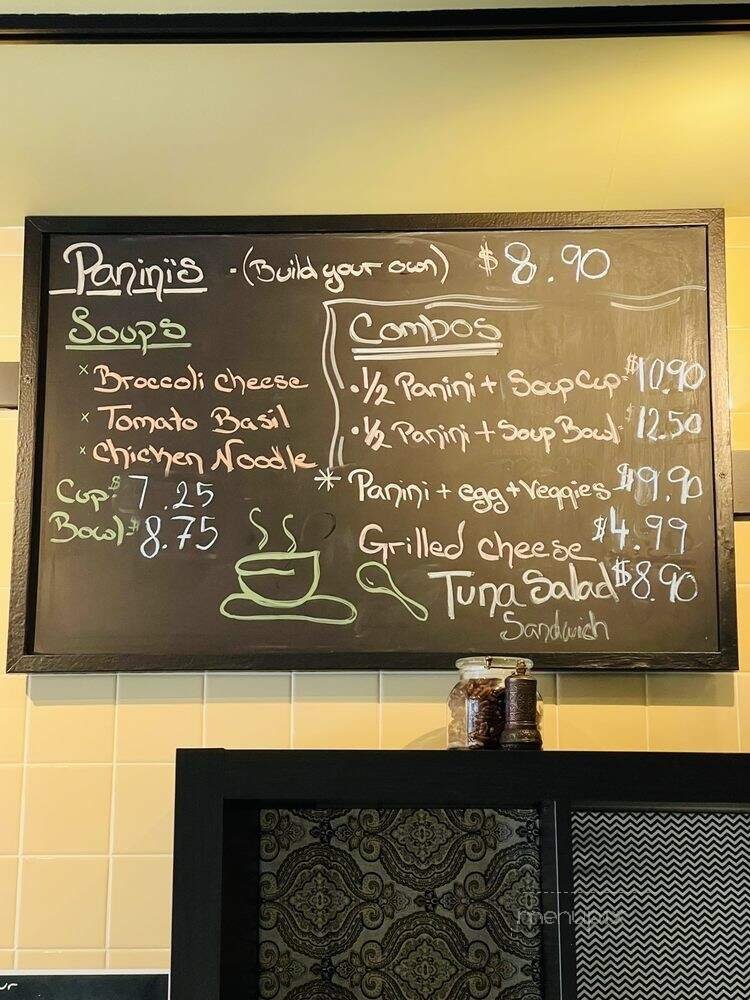 Panini's - (Build your own) $8.90
Soups
x Broccoli cheese
x Tomato Basil
x Chicken Noodle
Cup $7.25
Bowl $8.75
Combos
. 1/2 Panini + Soup Cup $10.90
. 1/2 Panini + Soup Bowl $12.50
* Panini + egg + Veggies $9.90
Grilled cheese $4.99
Tuna Salad $8.90
Sandwich
menupix
ur